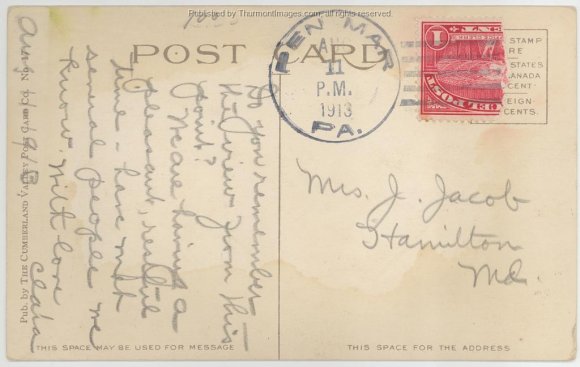 Published by ThurmontImages.com - all rights
POST CARD
PEN MAR
AUG
11
P.M.
1913
PA.
1
STAMP
RE
STATES
CANADA
CENT.
EIGN
CENTS.
Aug. 11, 1913
Do you remember
the view from this
point?
We are having a
pleasant, restful
time - have met
several people we
know. With love
Clara
Mrs. J. Jacob
Hamilton
Md.
Pub. by THE CUMBERLAND VALLEY POST CARD CO.
THIS SPACE MAY BE USED FOR MESSAGE
THIS SPACE FOR THE ADDRESS